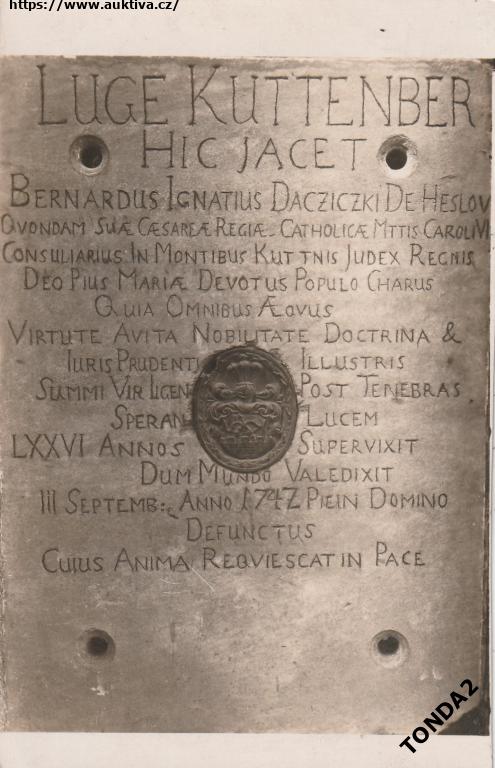 https://www.auktiva.cz/
LUGE KUTTENBER
HIC JACET
BERNARDUS IGNATIUS DACZICZKI DE HESLOV
QVONDAM SUÆ CÆSAREÆ REGIÆ CATHOLICÆ MTTIS CAROLI VI
CONSULIARIUS IN MONTIBUS KUTTNIS JUDEX REGNIS
DEO PIUS MARIÆ DEVOTUS POPULO CHARUS
QUIA OMNIBUS ÆQVUS
VIRTUTE AVITA NOBILITATE DOCTRINA &
IURIS PRUDENTI ILLUSTRIS
SUMMI VIR LIGEN POST TENEBRAS
SPERAN LUCEM
LXXVI ANNOS SUPERVIXIT
DUM MUNDO VALEDIXIT
III SEPTEMB: ANNO 1747 PIE IN DOMINO
DEFUNCTUS
CUIUS ANIMA REQVIESCAT IN PACE
TONDA2